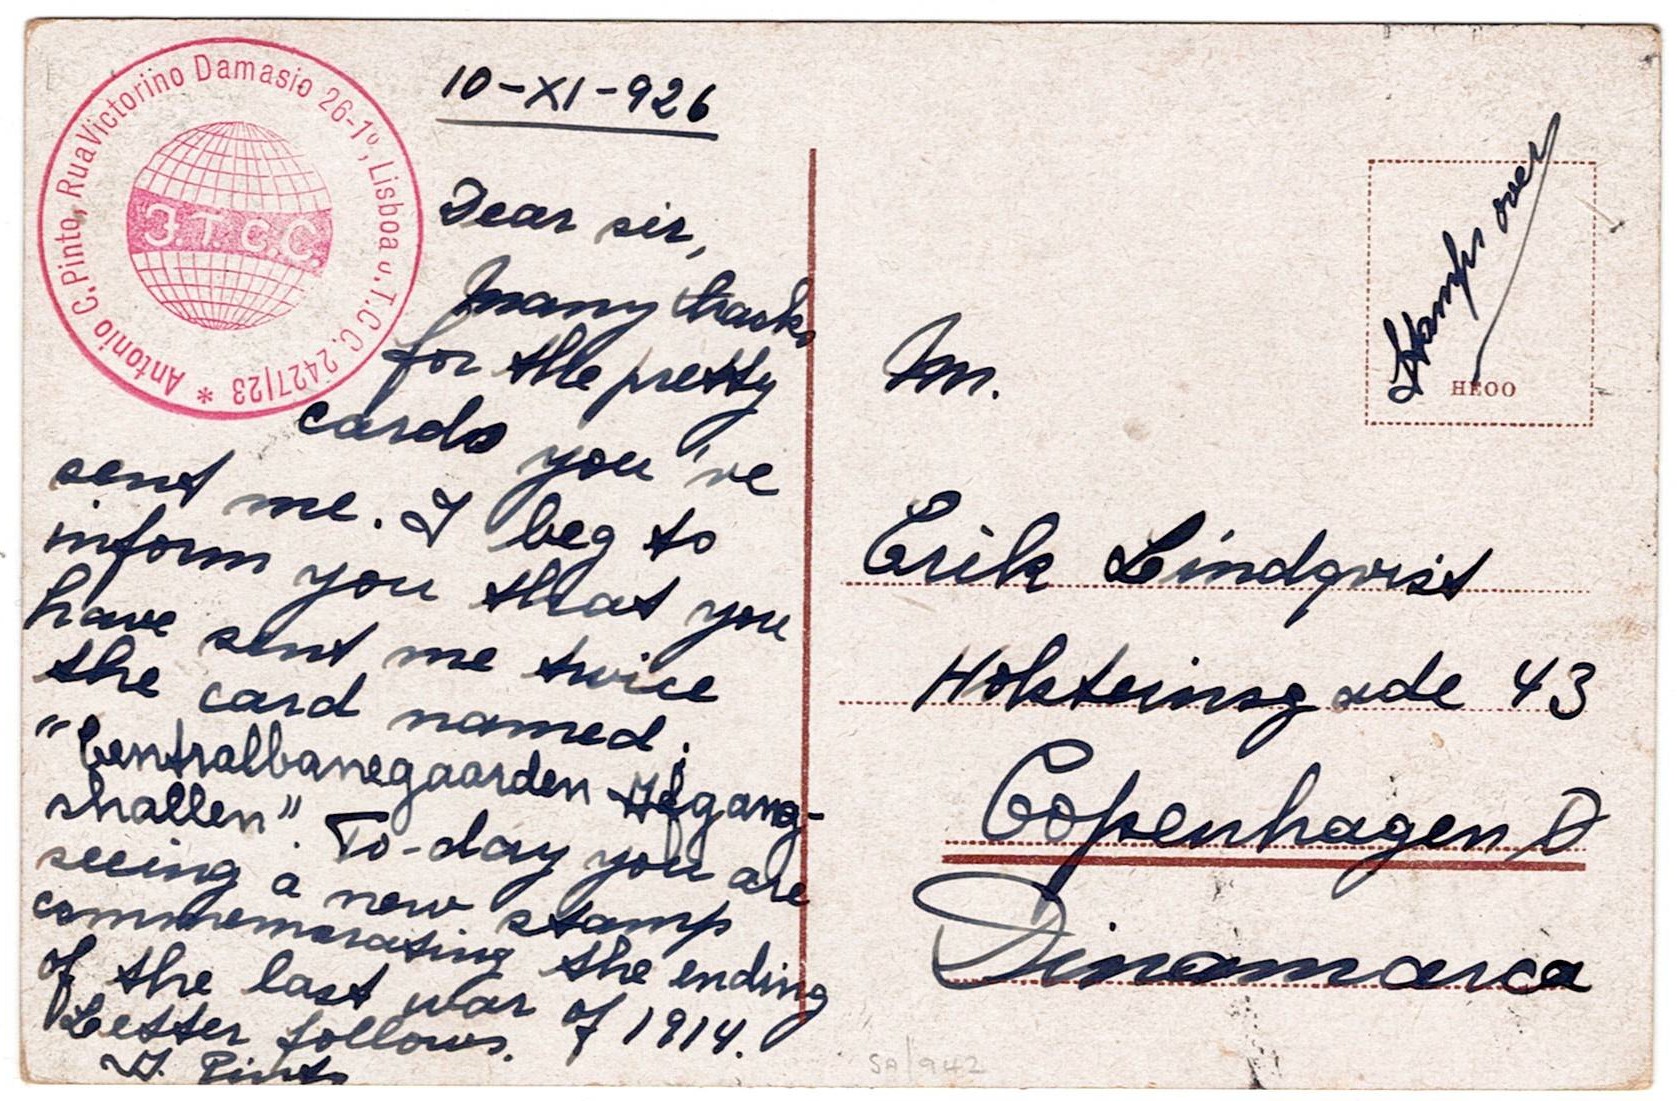 Antonio C. Pinto, Rua Victorino Damasio 26-1º, Lisboa J.T.C C. 2427/23 *
J.T.C.C.
10-XI-926
Dear sir,
Many thanks
for the pretty
cards you 've
sent me. I beg to
inform you that you
have sent me twice
the card named:
"Centralbanegaarden Afgang-
shallen". To-day you are
seeing a new stamp
commemorating the ending
of the last war of 1914.
Letter follows.
Pinto
Stamps over
HEOO
Mr.
Erik Lindqvist
Holsteinsgade 43
Copenhagen Ø
Dinamarca
SA/942